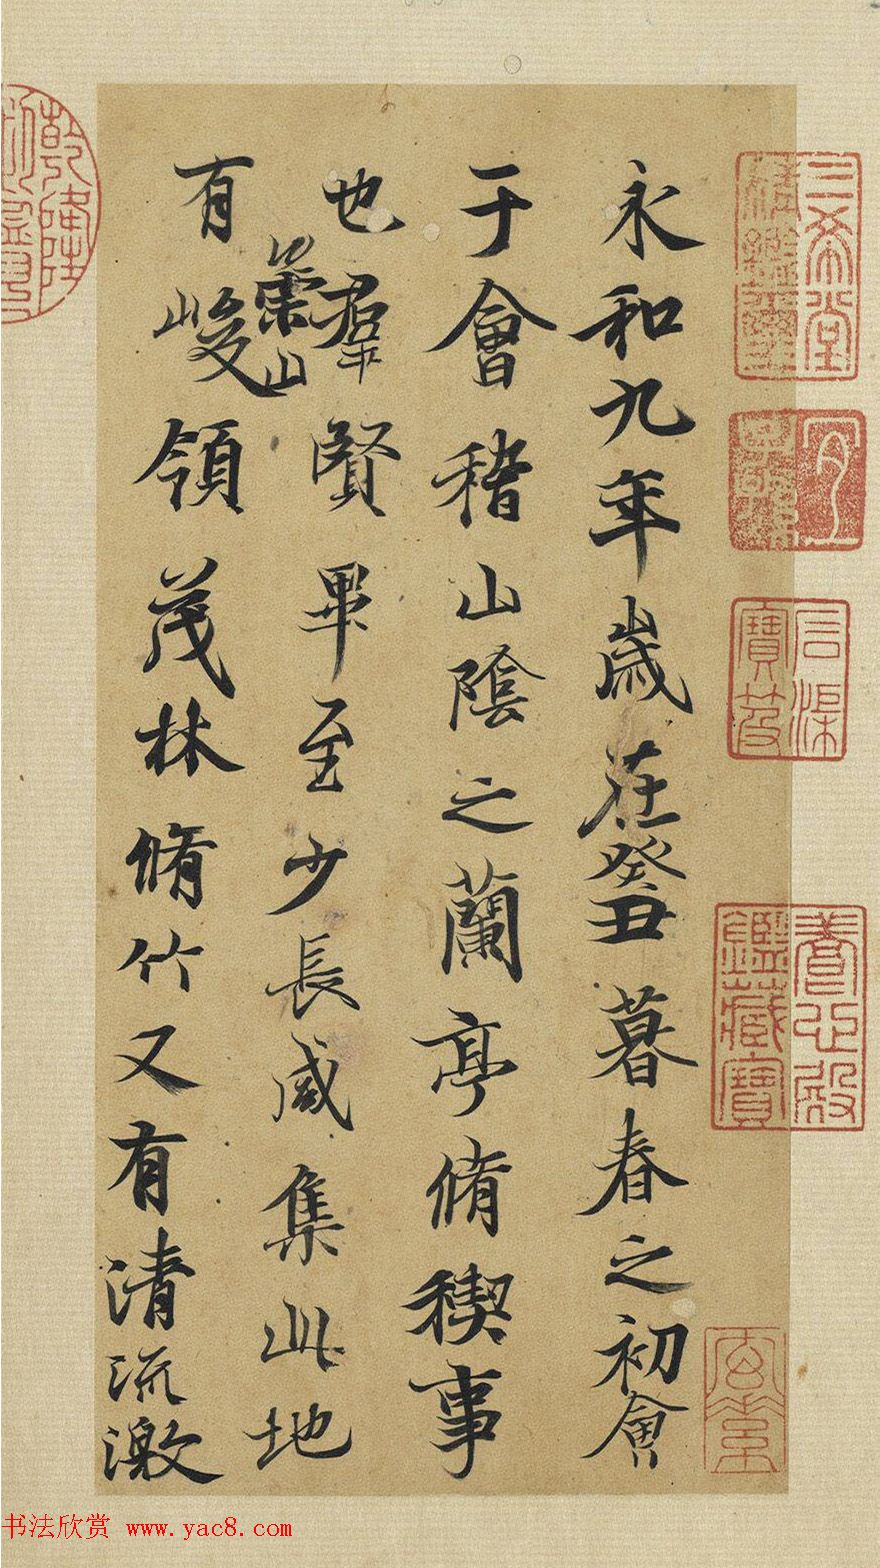 永和九年歲在癸丑暮春之初會
于會稽山陰之蘭亭脩稧事
也羣賢畢至少長咸集此地
有崇山峻領茂林脩竹又有清流激
三希堂精鑑璽
宜子孫
石渠寶笈
養心殿鑑藏寶
乾隆
书法欣赏 www.yac8.com